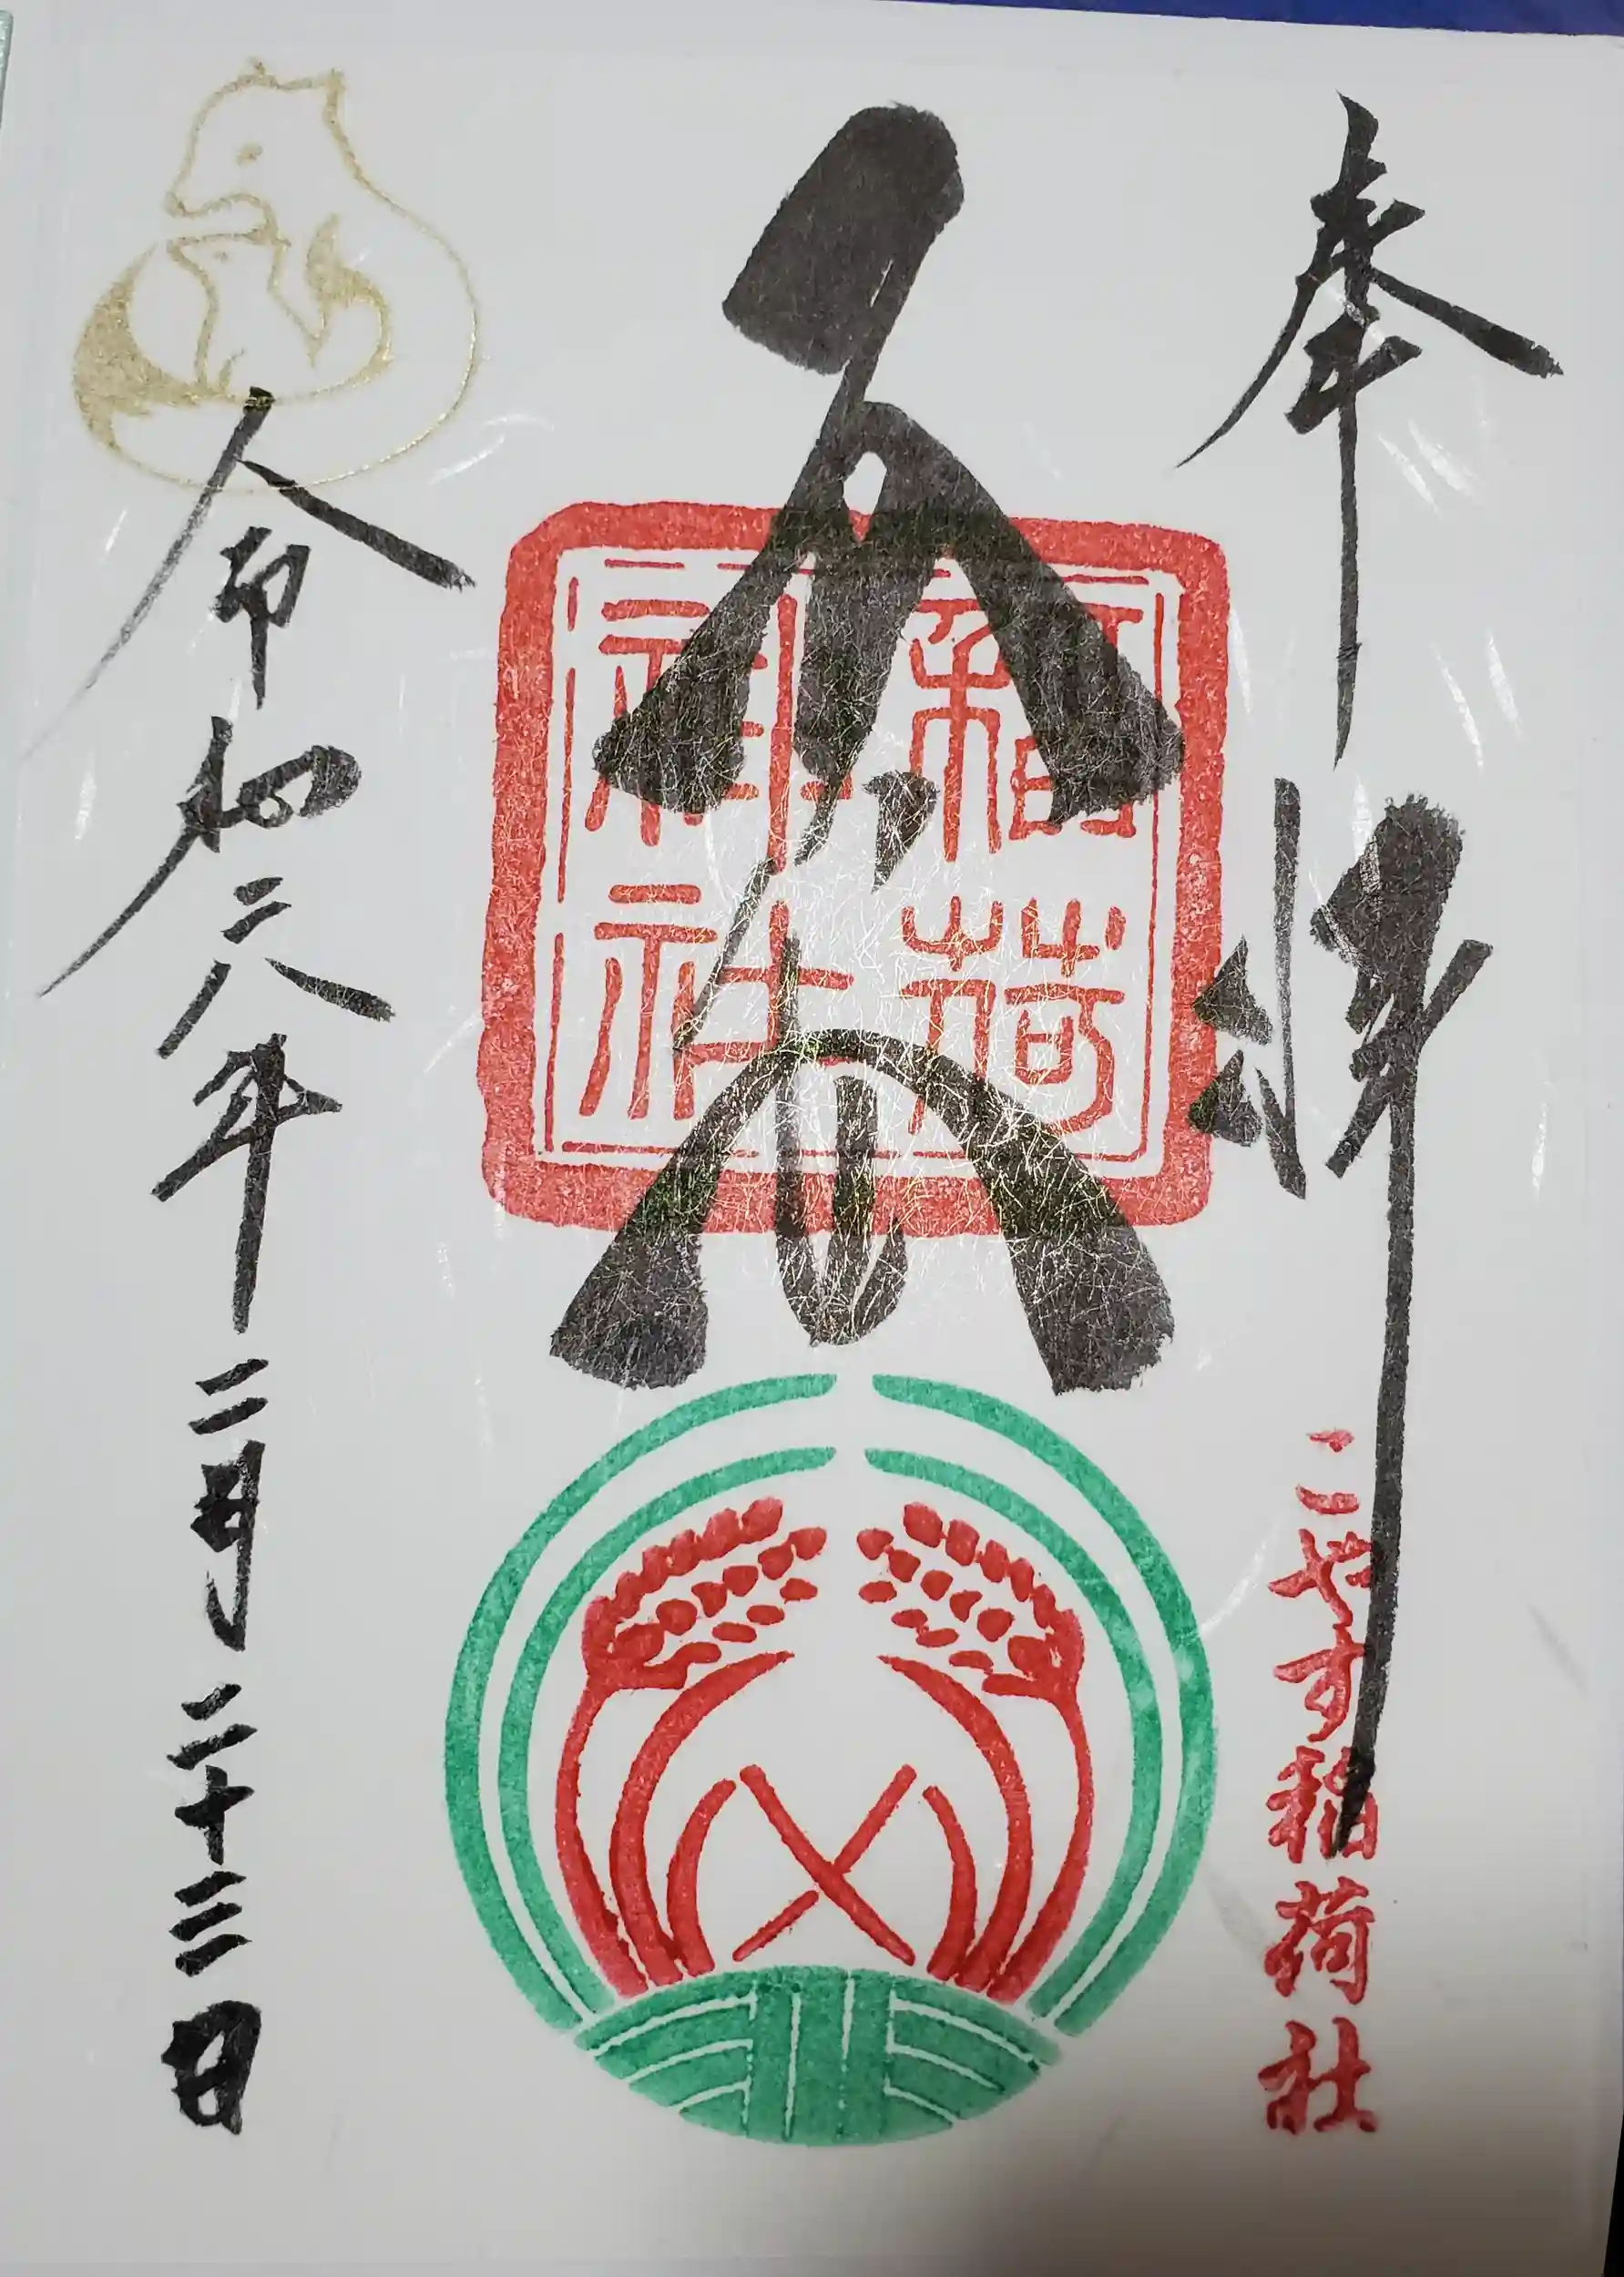 奉拝
こやす稲荷社
稲荷
神社
令和六年二月二十三日